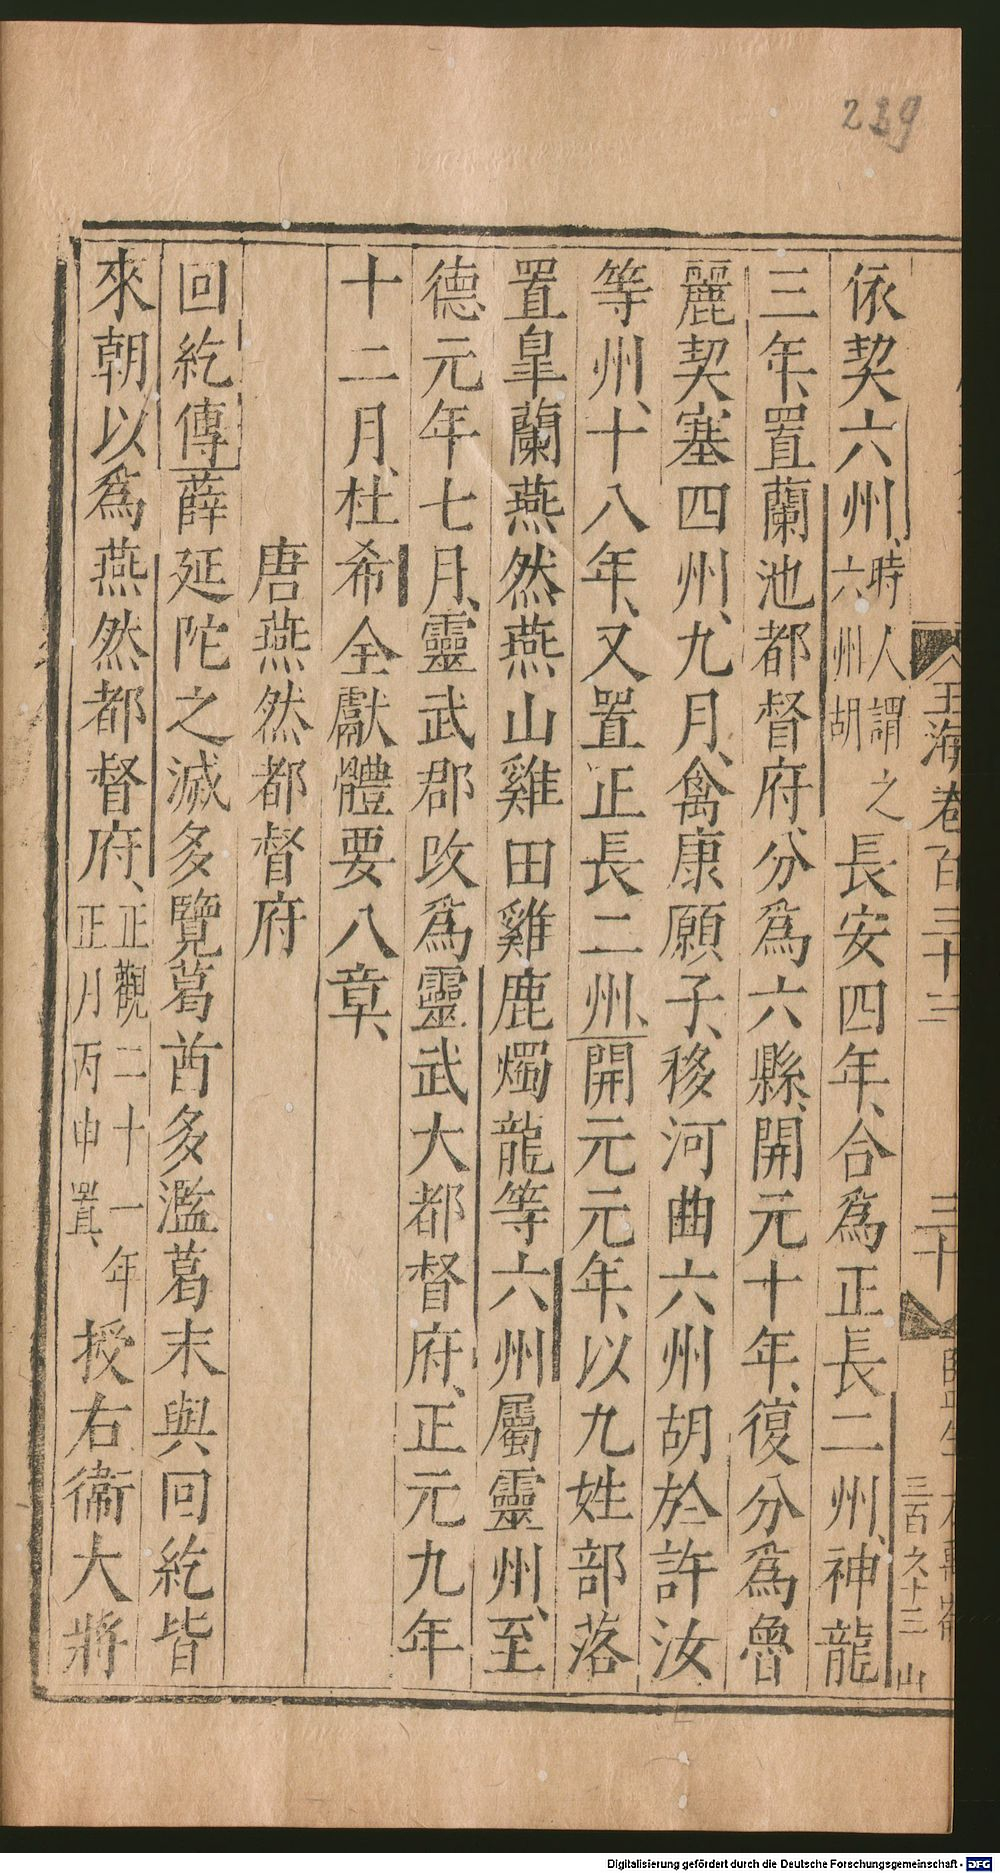 239
玉海卷百三十三
三十
依契六州、時人謂之六州胡長安四年、合爲正長二州、神龍
三年、置蘭池都督府、分爲六縣、開元十年、復分爲魯
麗契塞四州、九月、禽康願子、移河曲六州胡於許汝
等州、十八年、又置正長二州、開元元年、以九姓部落
置皐蘭燕然燕山雞田雞鹿燭龍等六州屬靈州、至
德元年七月、靈武郡攺爲靈武大都督府、正元九年
十二月、杜希全獻體要八章、
唐燕然都督府
回紇傳薛延陀之滅多覽葛酋多濫葛末與回紇皆
來朝以爲燕然都督府、正觀二十一年正月丙申置、授右衞大將
Digitalisierung gefördert durch die Deutsche Forschungsgemeinschaft - DFG